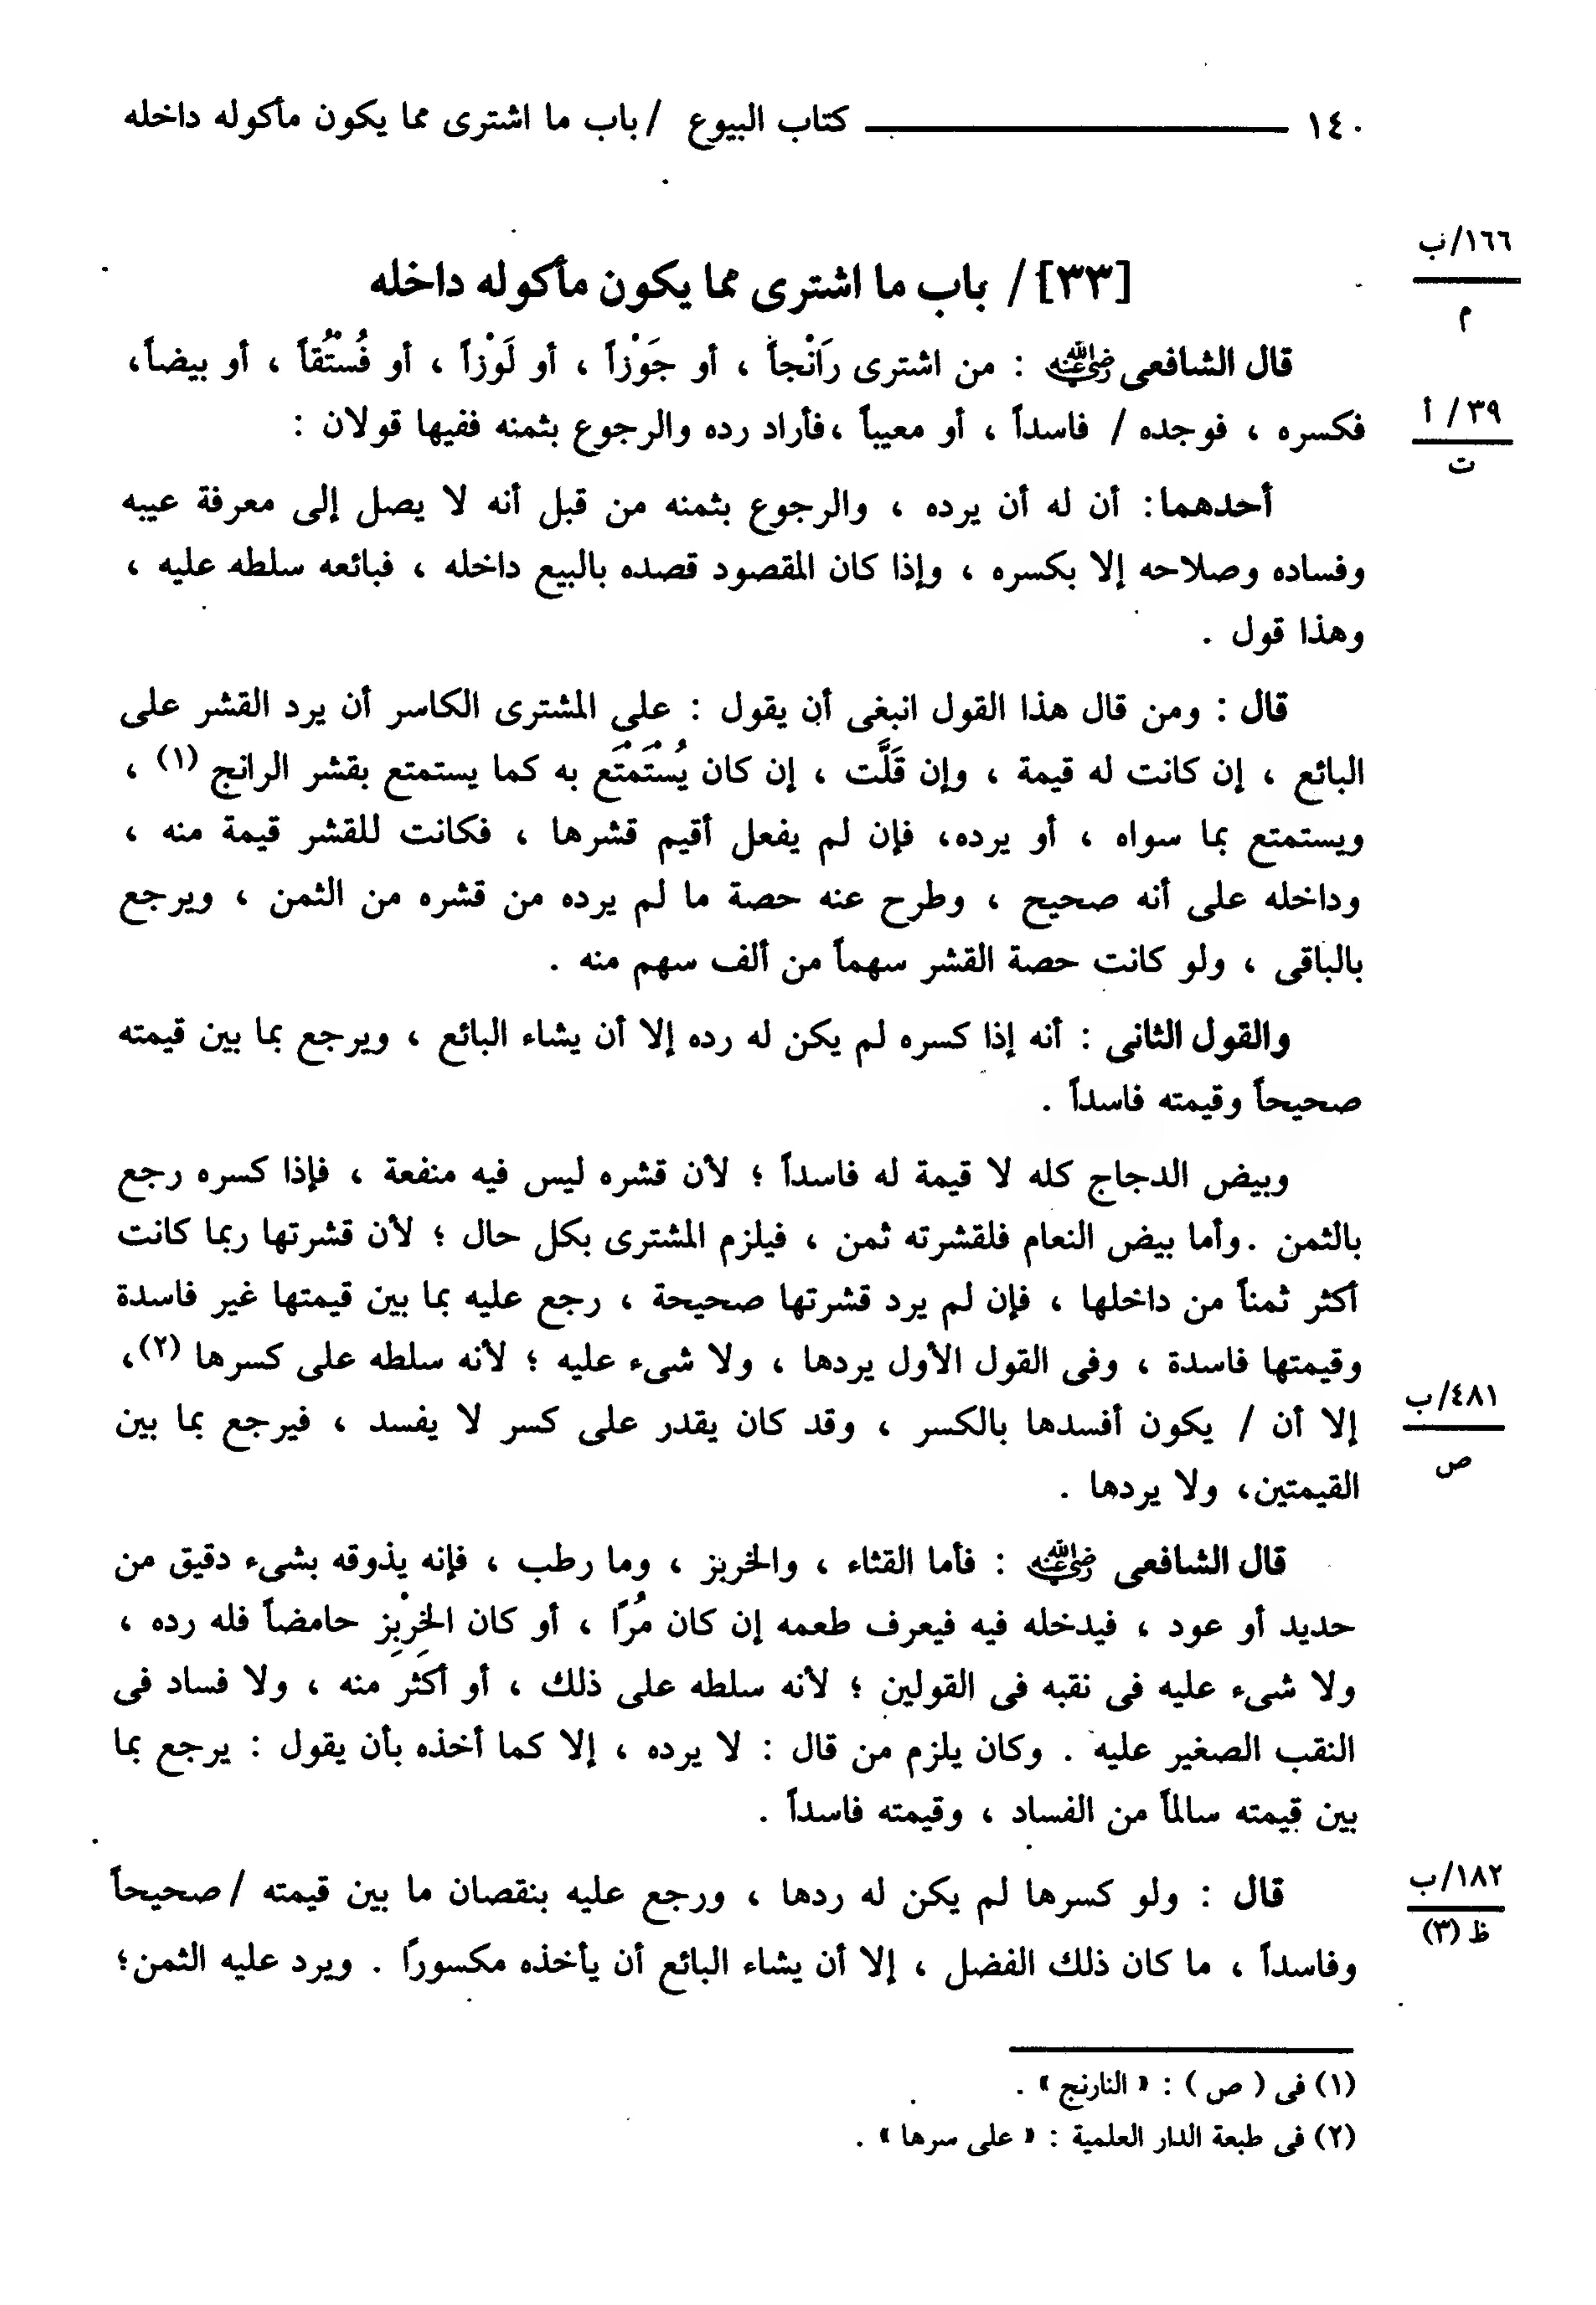 ١٤٠ ـــــــــــــــــ كتاب البيوع / باب ما اشترى مما يكون مأكوله داخله
١٦٦/ب
م
[٣٣] / باب ما اشترى مما يكون مأكوله داخله
قال الشافعى رضي الله عنه : من اشترى رَانْجاً ، أو جَوْزاً ، أو لَوْزاً ، أو فُسْتُقاً ، أو بيضاً،
٣٩/ أ
ت
فكسره ، فوجده / فاسداً ، أو معيباً ،فأراد رده والرجوع بثمنه ففيها قولان :
أحدهما: أن له أن يرده ، والرجوع بثمنه من قبل أنه لا يصل إلى معرفة عيبه
وفساده وصلاحه إلا بكسره ، وإذا كان المقصود قصده بالبيع داخله ، فبائعه سلطه عليه ،
وهذا قول .
قال : ومن قال هذا القول انبغى أن يقول : على المشترى الكاسر أن يرد القشر على
البائع ، إن كانت له قيمة ، وإن قَلَّت ، إن كان يُسْتَمْتَع به كما يستمتع بقشر الرانج (١) ،
ويستمتع بما سواه ، أو يرده، فإن لم يفعل أقيم قشرها ، فكانت للقشر قيمة منه ،
وداخله على أنه صحيح ، وطرح عنه حصة ما لم يرده من قشره من الثمن ، ويرجع
بالباقى ، ولو كانت حصة القشر سهماً من ألف سهم منه .
والقول الثانى : أنه إذا كسره لم يكن له رده إلا أن يشاء البائع ، ويرجع بما بين قيمته
صحيحاً وقيمته فاسداً .
وبيض الدجاج كله لا قيمة له فاسداً ؛ لأن قشره ليس فيه منفعة ، فإذا كسره رجع
بالثمن .وأما بيض النعام فلقشرته ثمن ، فيلزم المشترى بكل حال ؛ لأن قشرتها ربما كانت
أكثر ثمناً من داخلها ، فإن لم يرد قشرتها صحيحة ، رجع عليه بما بين قيمتها غير فاسدة
وقيمتها فاسدة ، وفى القول الأول يردها ، ولا شىء عليه ؛ لأنه سلطه على كسرها (٢)،
٤٨١/ب
ص
إلا أن / يكون أفسدها بالكسر ، وقد كان يقدر على كسر لا يفسد ، فيرجع بما بين
القيمتين، ولا يردها .
قال الشافعى رضي الله عنه : فأما القثاء ، والخربز ، وما رطب ، فإنه يذوقه بشىء دقيق من
حديد أو عود ، فيدخله فيه فيعرف طعمه إن كان مُرًا ، أو كان الخِرْبِز حامضاً فله رده ،
ولا شىء عليه فى نقبه فى القولين ؛ لأنه سلطه على ذلك ، أو أكثر منه ، ولا فساد فى
النقب الصغير عليه . وكان يلزم من قال : لا يرده ، إلا كما أخذه بأن يقول : يرجع بما
بين قيمته سالماً من الفساد ، وقيمته فاسداً .
١٨٢/ب
ظ (٣)
قال : ولو كسرها لم يكن له ردها ، ورجع عليه بنقصان ما بين قيمته / صحيحاً
وفاسداً ، ما كان ذلك الفضل ، إلا أن يشاء البائع أن يأخذه مكسوراً . ويرد عليه الثمن؛
(١) فى ( ص ) : « النارنج » .
(٢) فى طبعة الدار العلمية : « على سرها » .